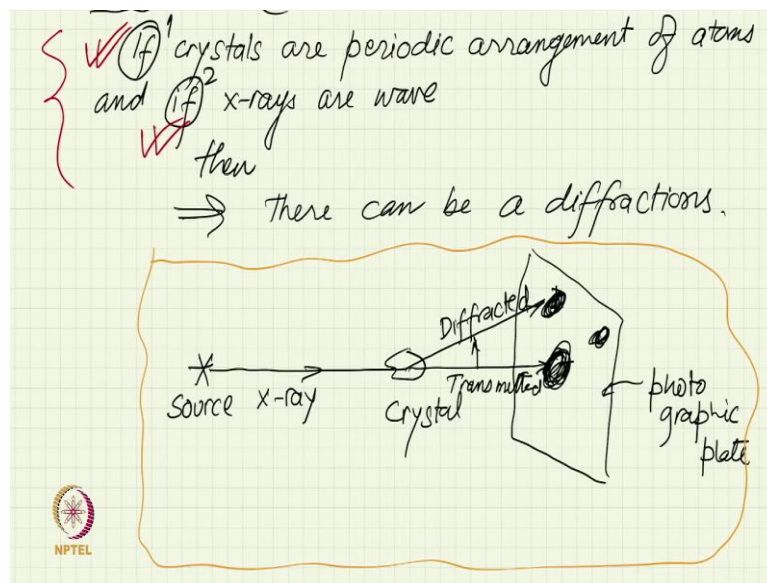 if 1 crystals are periodic arrangement of atoms
and if 2 x-rays are wave
then
⇒ There can be a diffractions.
Diffracted
Transmitted
Source
X-ray
Crystal
photo
graphic
plate
NPTEL